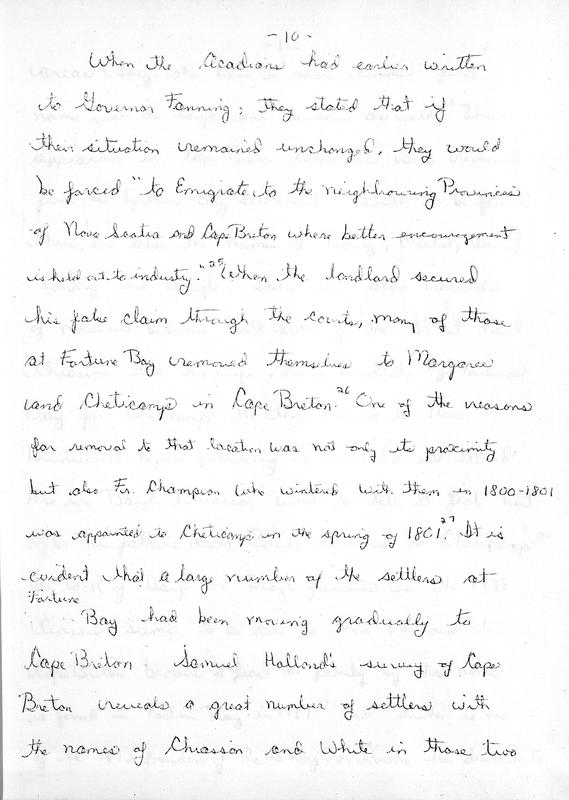 - 10 -
When the Acadians had earlier written
to Governor Fanning; they stated that if
their situation remained unchanged, they would
be forced "to Emigrate to the neighbouring Provinces
of Nova Scotia and Cape Breton where better encouragement
is held out to industry."25 When the landlard secured
his false claim through the courts, many of those
at Fortune Bay removed themselves to Margaree
and Cheticamp in Cape Breton.26 One of the reasons
for removal to that location was not only its proximity
but also Fr. Champion who wintered with them in 1800-1801
was appointed to Cheticamp in the spring of 1801.27 It is
evident that a large number of the settlers at
Fortune
Bay had been moving gradually to
Cape Breton. Samuel Holland's survey of Cape
Breton reveals a great number of settlers with
the names of Chiasson and White in those two